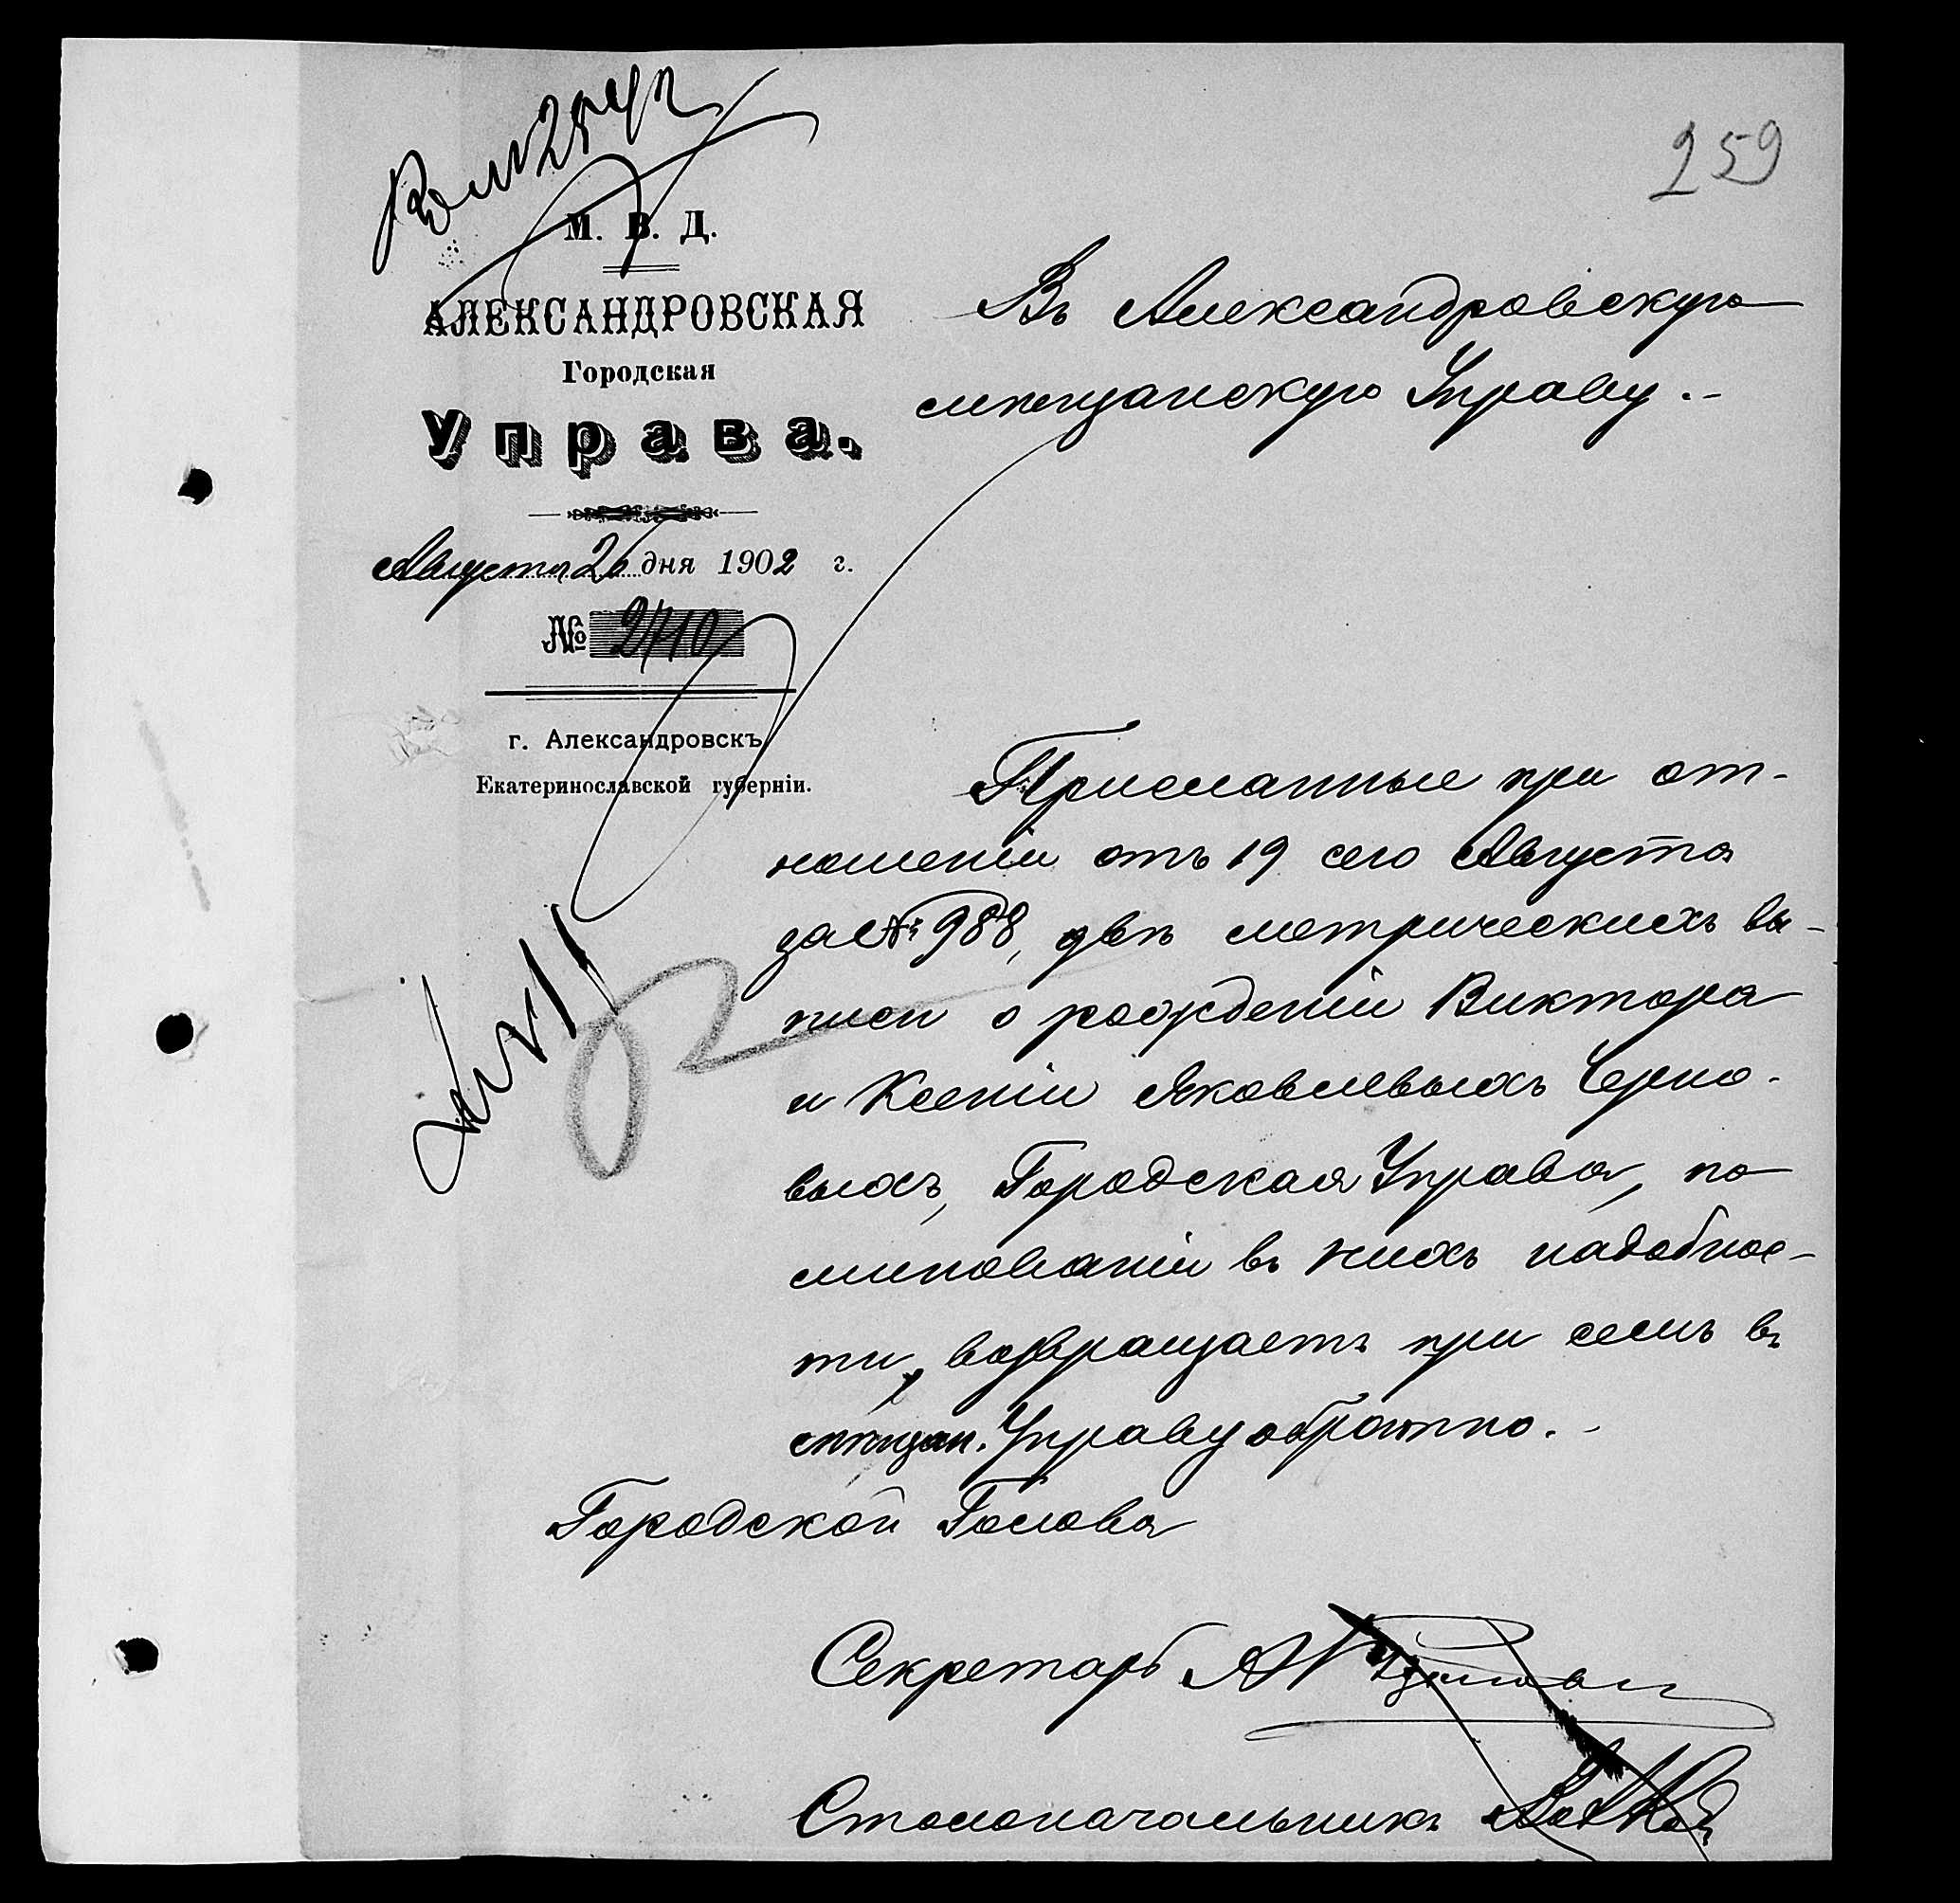 259
М. В. Д.
АЛЕКСАНДРОВСКАЯ
Городская
Управа.
Августа 26 дня 1902 г.
№ 2710
г. Александровскъ,
Екатеринославской губерніи.
Въ Александровскую
мѣщанскую Управу.-
Присланные при от-
ношеніи отъ 19 сего Августа
за № 988, двѣ метрическихъ вы-
писи о рожденіи Виктора
и Ксеніи Яковлевыхъ Черно-
выхъ, Городская Управа, по
минованіи въ нихъ надобнос-
ти, возвращаетъ при семъ въ
мѣщан. Управу обратно.-
Городской Голова
Секретарь
Столоначальникъ